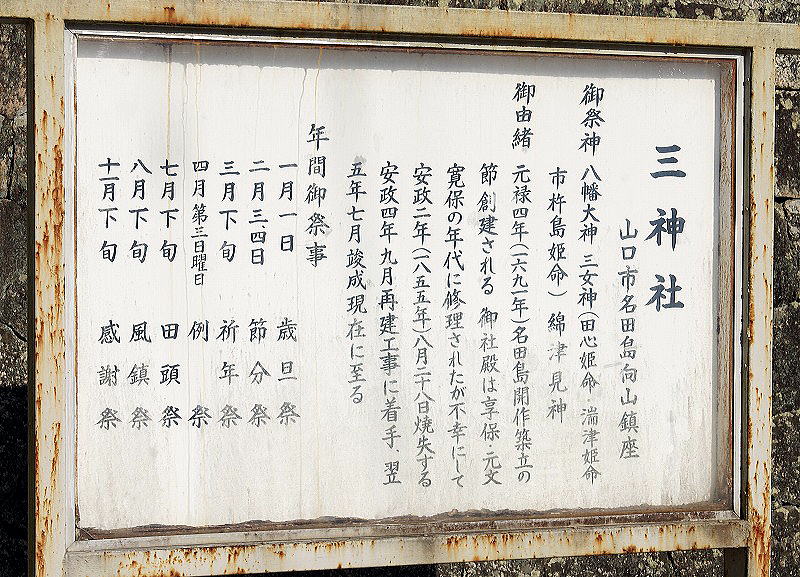 三神社
山口市名田島向山鎮座
御祭神 八幡大神 三女神(田心姫命・湍津姫命
市杵島姫命) 綿津見神
御由緒 元禄四年(一六九一年)名田島開作築立の
節創建される 御社殿は享保・元文
寛保の年代に修理されたが不幸にして
安政二年(一八五五年)八月二十八日焼失する
安政四年九月再建工事に着手、翌
五年七月竣成現在に至る
年間御祭事
一月一日 歳旦祭
二月三、四日 節分祭
三月下旬 祈年祭
四月第三日曜日 例祭
七月下旬 田頭祭
八月下旬 風鎮祭
十一月下旬 感謝祭